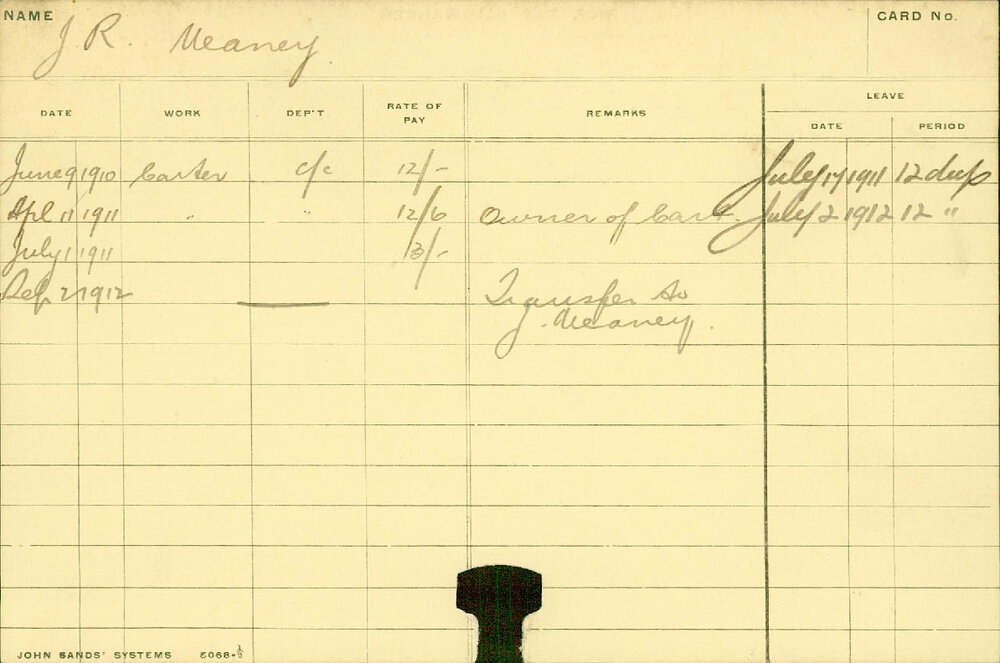 NAME J. R. Meaney CARD No.
LEAVE
DATE WORK DEP'T RATE OF PAY REMARKS DATE PERIOD
June 9 1910 Carter c/c 12/- July 17 1911 12 days
Apl 11 1911 " " 12/6 Owner of Cart. July 2 1912 12 "
July 1 1911 13/-
Sep 2 1912 Transfer to
J. Meaney.
JOHN SANDS' SYSTEMS 6068-½